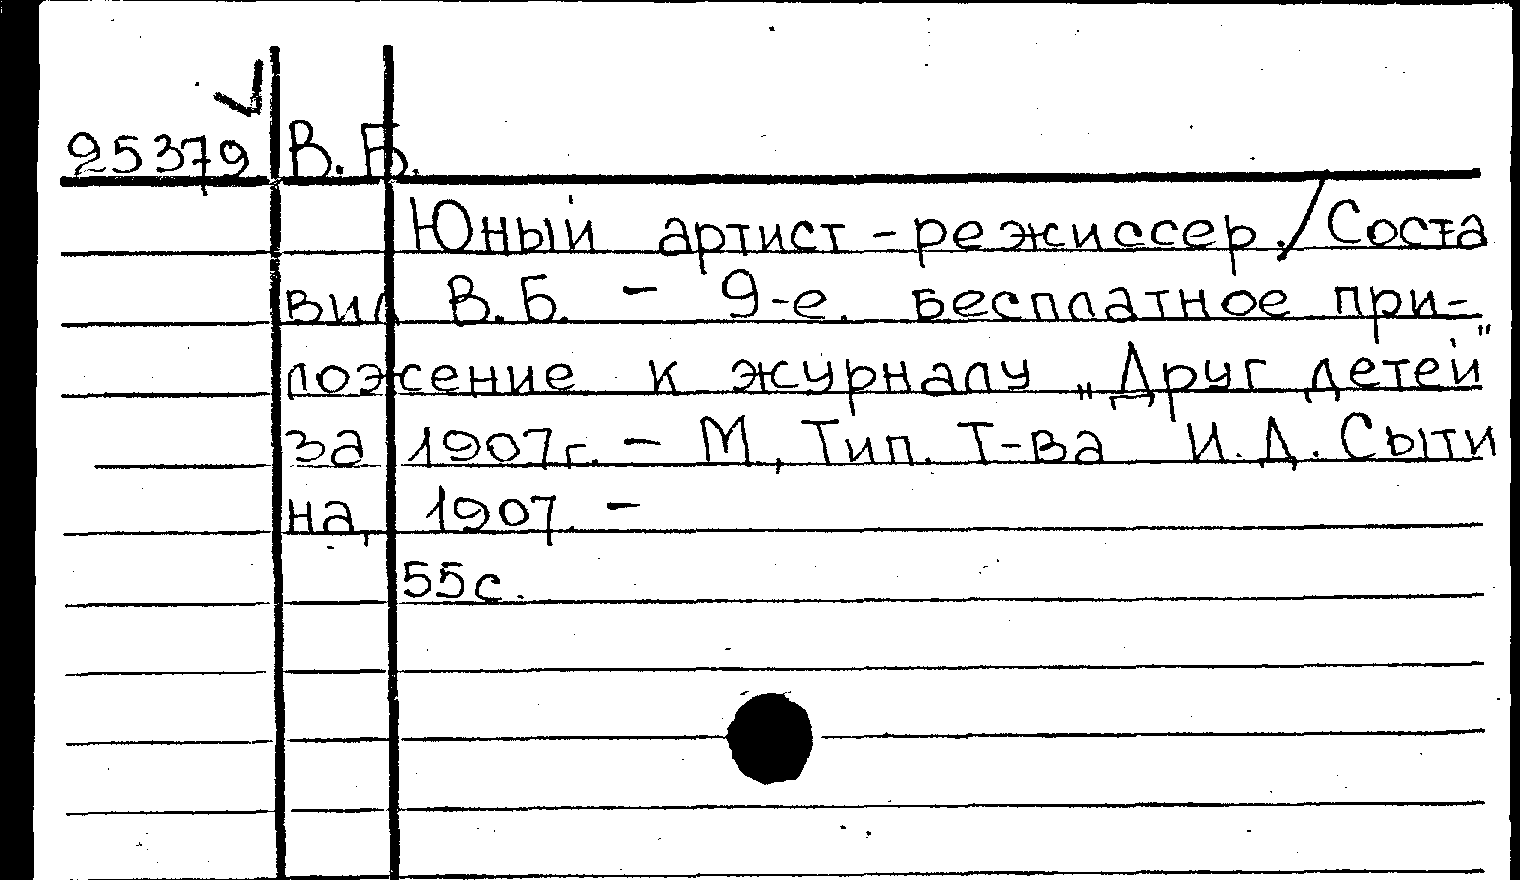 25379 В. Б.
Юный артист - режиссер. / Соста
вил В. Б. - 9-е. бесплатное при-
ложение к журналу „Друг детей"
за 1907г. - М, Тип. Т-ва И. Д. Сыти
на, 1907. -
55с.